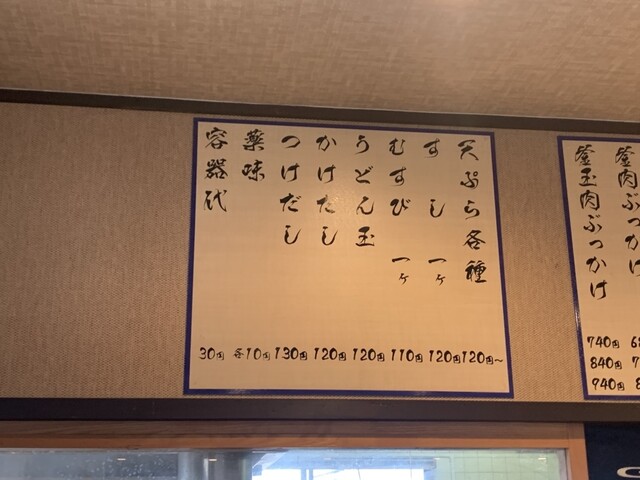 釜肉ぶっかけ
釜玉肉ぶっかけ 740円 840円 940円
天ぷら各種 120円～
すし 一ヶ 120円
むすび 一ヶ 110円
うどん玉 120円
かけだし 120円
つけだし 130円
薬味 各10円
容器代 30円